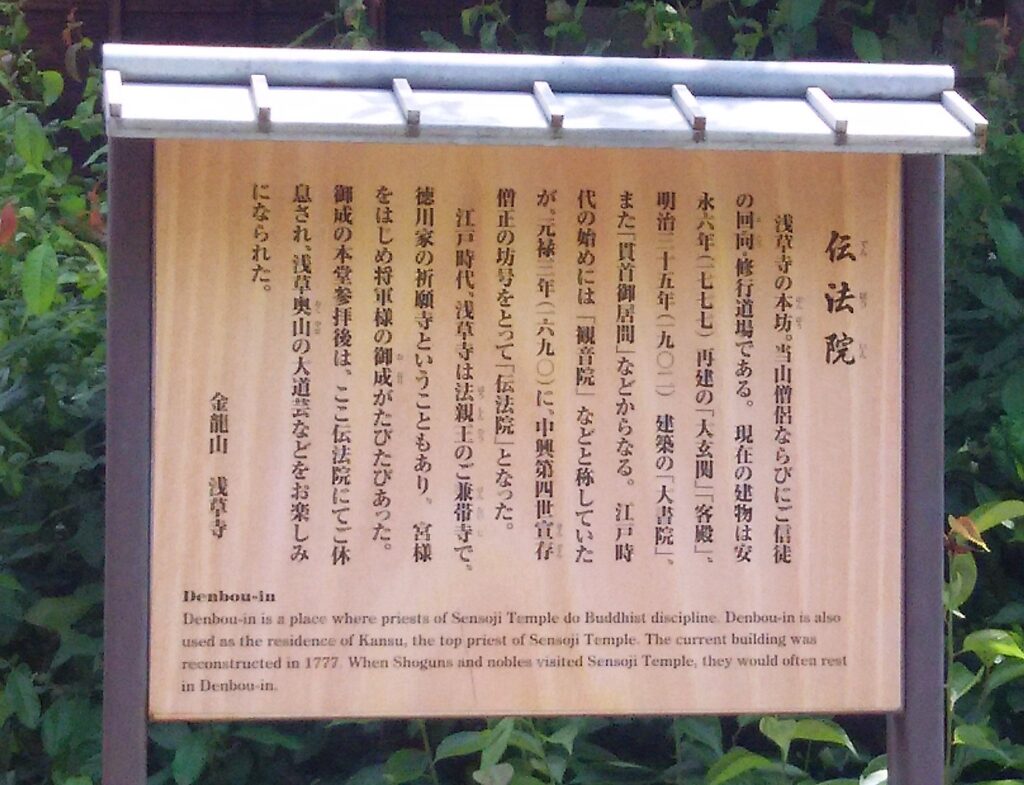 伝法院
浅草寺の本坊。当山僧侶ならびにご信徒
の回向・修行道場である。現在の建物は安
永六年(一七七七)再建の「大玄関」「客殿」、
明治三十五年(一九〇二)建築の「大書院」、
また「貫首御居間」などからなる。江戸時
代の始めには「観音院」などと称していた
が、元禄三年(一六九〇)に、中興第四世宣存
僧正の坊号をとって「伝法院」となった。
江戸時代、浅草寺は法親王のご兼帯寺で、
徳川家の祈願寺ということもあり、宮様
をはじめ将軍様の御成がたびたびあった。
御成の本堂参拝後は、ここ伝法院にてご休
息され、浅草奥山の大道芸などをお楽しみ
になられた。
金龍山 浅草寺
Denbou-in
Denbou-in is a place where priests of Sensoji Temple do Buddhist discipline. Denbou-in is also
used as the residence of Kansu, the top priest of Sensoji Temple. The current building was
reconstructed in 1777. When Shoguns and nobles visited Sensoji Temple, they would often rest
in Denbou-in.